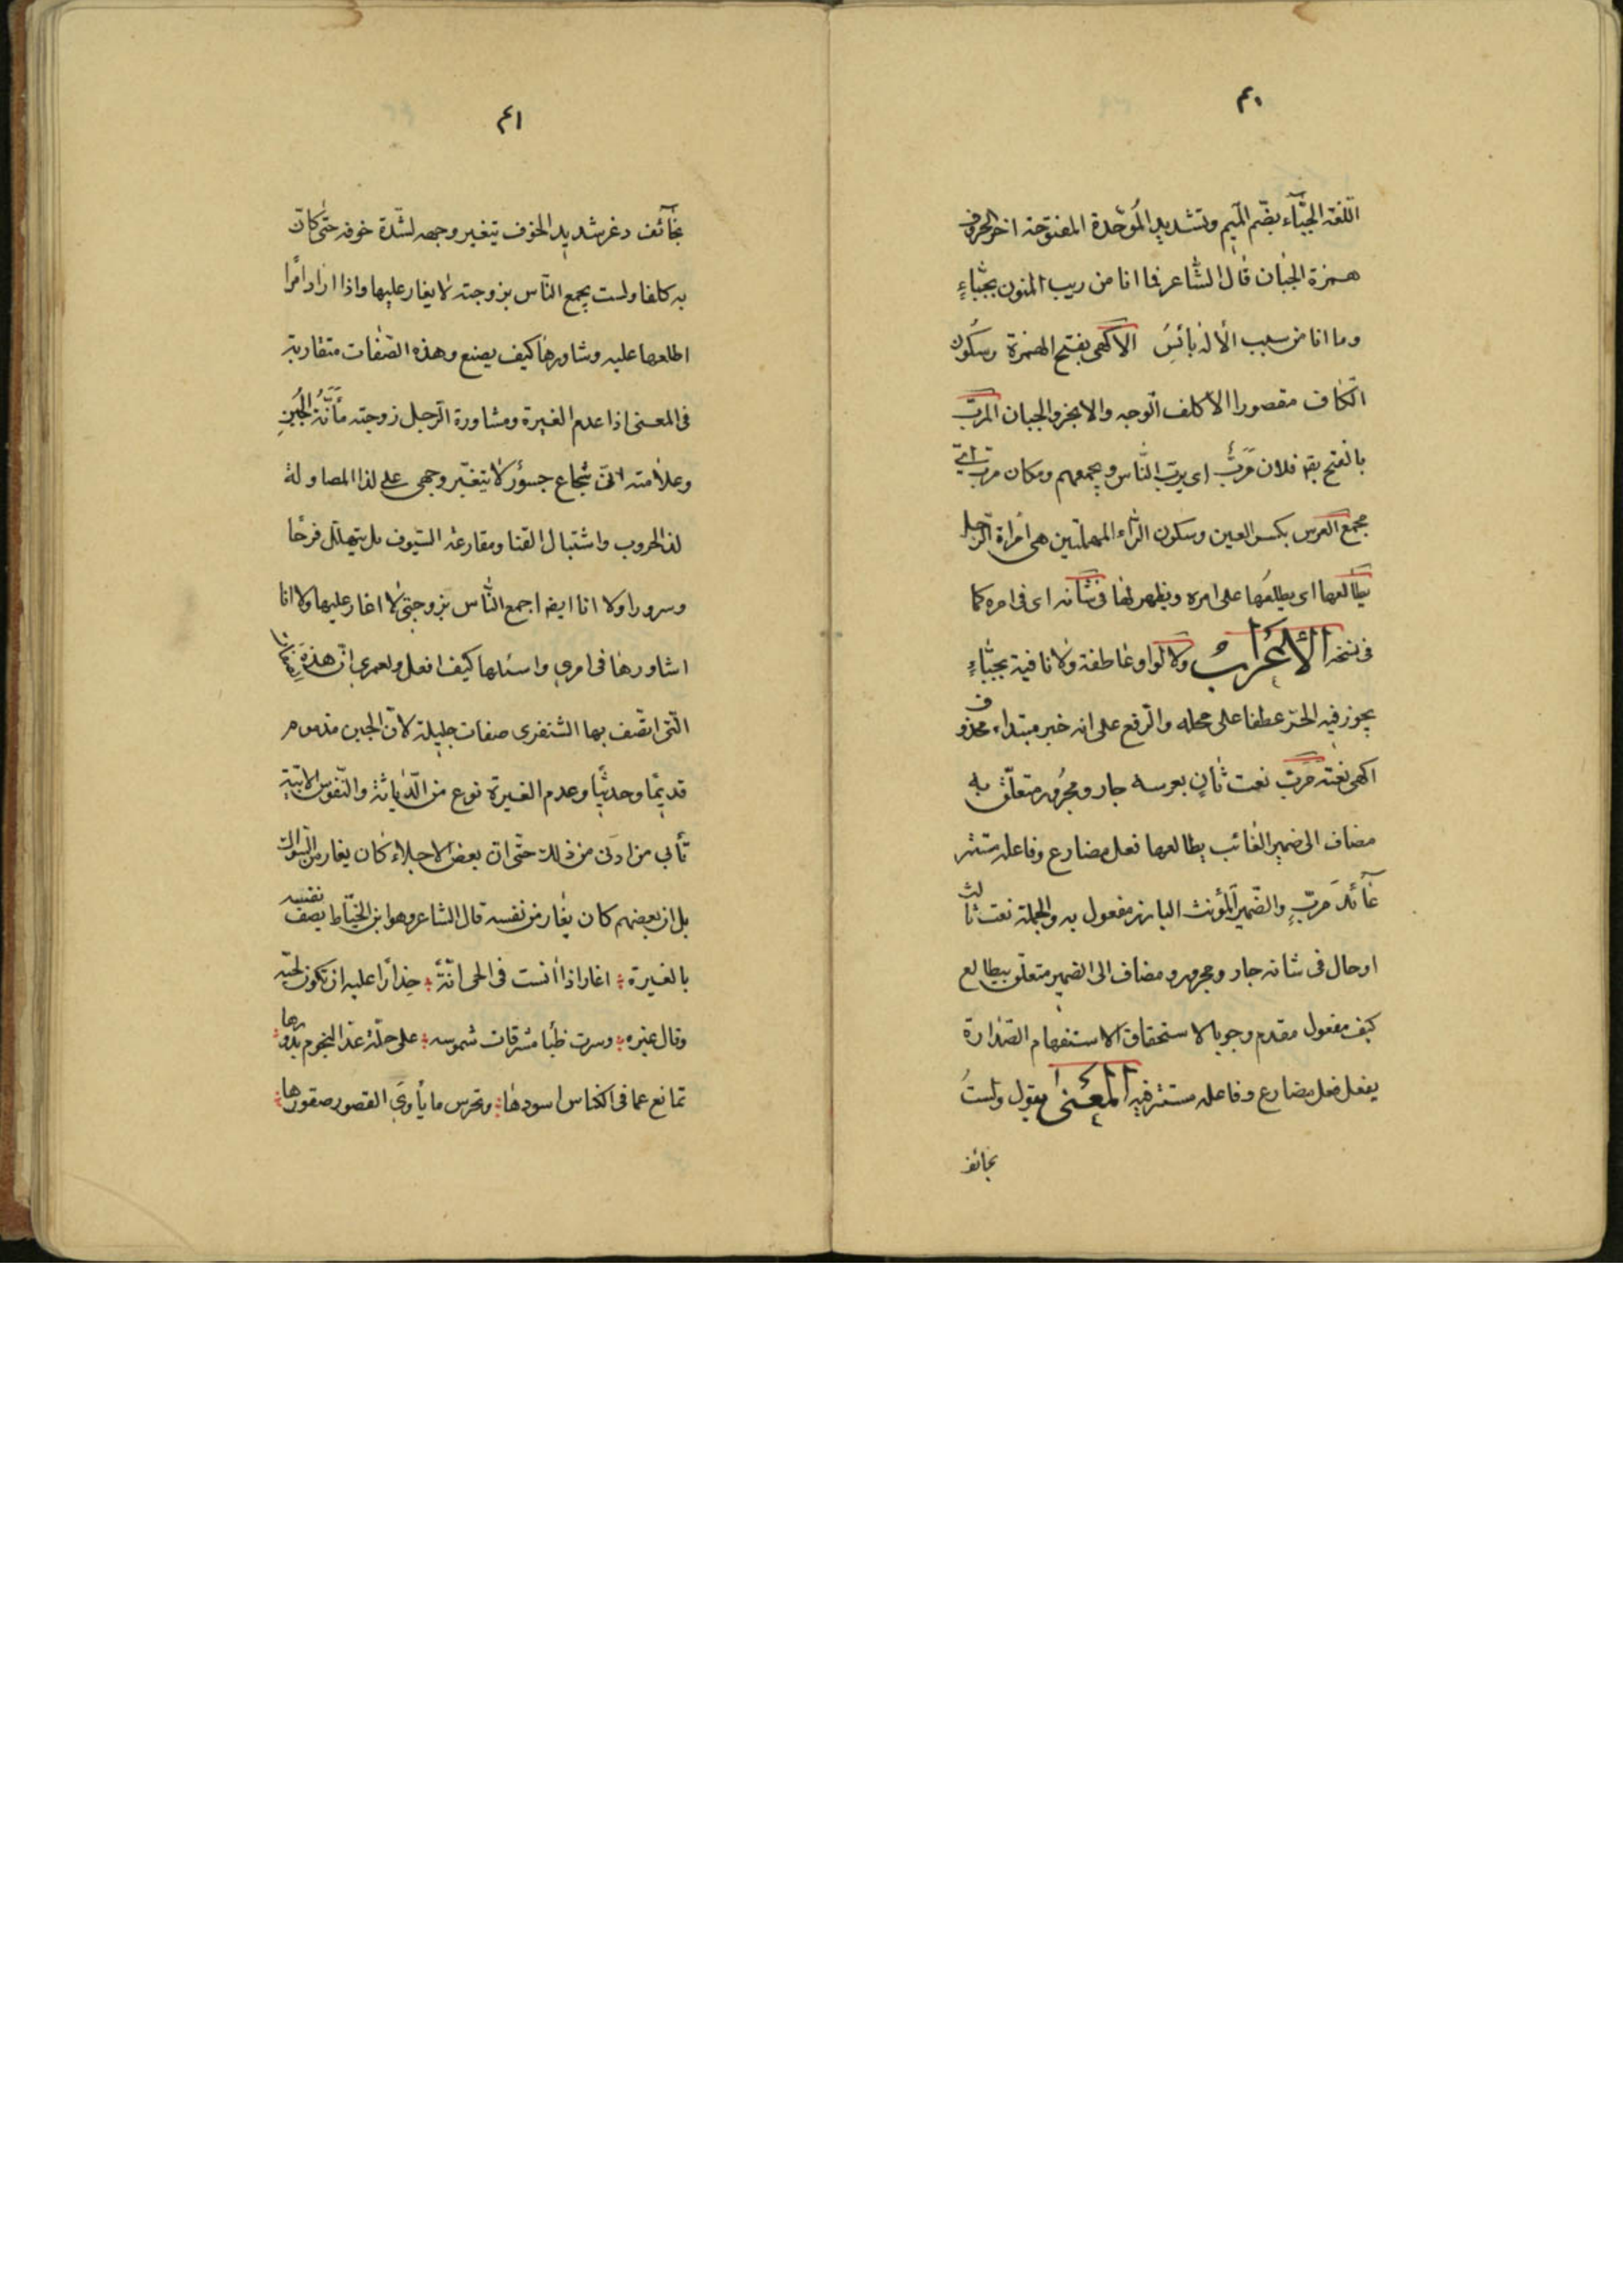 ٤٠
اللغة الجبّآء بضّم الميم وتشديد الموحّدة المفتوحة اخر الحروف
همزة الجبان قال الشاعر فما انا من ريب المنون بجبّاءٍ
وما انا من سيب الأله بائسِ الاكهى بفتح الهمزة وسكون
الكاف مقصورا الاكلف الوجه والابخر والجبان المربّ
بالفتح يقه فلان مَربّ اى يربّ الناس ويجمعهم ومكان مربّ اىّ
مجمع العرس بكسر العين وسكون الراء المهملتين هى امراة الرّجل
يطالعها اى يطلعها على امره ويظهر لها فى شأنه اى فى امره كما
فى نسخة الأعرابُ ولا الواو عاطفة ولا نافية بجبّاءٍ
يجوز فيه الجرّ عطفا على محله والرفع على انه خبر مبتداء محذوف
اكهى نعته مربّ نعت ثانٍ بعرسه جار ومجرور متعلّق به
مضاف الى ضمير الغائب يطالعها فعل مضارع وفاعله مستتر
عآئد مَربّ والضّمير المؤنث البارز مفعول به والجملة نعت ثالث
اوحال فى شانه جار ومجرور ومضاف الى الضمير متعلّق بيطالع
كيف مفعول مقدم وجوبا لاستحقاق الاستفهام الصّدارة
يفعل فعل مضارع وفاعله مستتر فيه المعنى يقول ولستُ
بخائف
٤١
بخآئف دغر شديد الخوف يتغير وجهه لشدّة خوفه حتى كانّ
به كلفا ولست بجمع النّاس بزوجته لا يغار عليها واذا اراد امرا
اطلعها عليه وشاورها كيف يصنع وهذه الصّفات متقاربة
فى المعنى اذا عدم الغيرة ومشاورة الرّجل زوجته مأنّة الجُبنِ
وعلامته انّى شجاع جسؤر لا يتغيّر وجهى على لذا المصاولة
لذ الحروب واشتبال القنا ومقارعة السّيوف بل يتهلّل فرحًا
وسرورا ولا انا ايضه اجمع النّاس بزوجتى لا اغار عليها ولا انا
اشاورها فى امرى واسئلها كيف افعل ولعمرى انّ هذهِ الصفات
الّتى اتصف بها الشنفرى صفات جليلة لانّ الجبن مذموم
قديمًا وحديثًا وعدم الغيرة نوع من الدّياثة والنّفوس الابيّة
تأبى من ادنى من ذلك حتّى انّ بعض الاجلاء كان يغار من السّواك
بل ان بعضهم كان يغار من نفسه قال الشاعر وهو ابن الخيّاط يصف نفسه
بالغيرة ؛ اغار اذا أنست فى الحى انّةً ؛ حِذارًا عليه ان تكون لحبّه
وقال غيره ؛ وسرت ظبأ مشرقات شموسه ؛ على حلّة عذ النجوم بدورها ؛
تمانع عما فى الكناس اسودها ؛ وتحرس ما يأوى القصور صقورها ؛